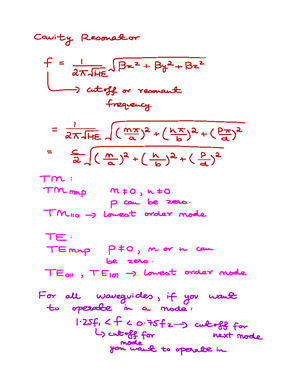 Cavity Resonator
f = 1/(2π√με) √(βx² + βy² + βz²)
→ cutoff or resonant
frequency
= 1/(2π√με) √((mπ/a)² + (nπ/b)² + (pπ/d)²)
= c/2 √((m/a)² + (n/b)² + (p/d)²)
TM :
TMmnp m≠0, n≠0
p can be zero.
TM110 → lowest order mode
TE :
TEmnp p≠0, m or n can
be zero.
TE011, TE101 → lowest order mode
For all waveguides, if you want
to operate in a mode:
1.25f1 < f < 0.75f2 → cutoff for
next mode
↳ cutoff for
mode
you want to operate in